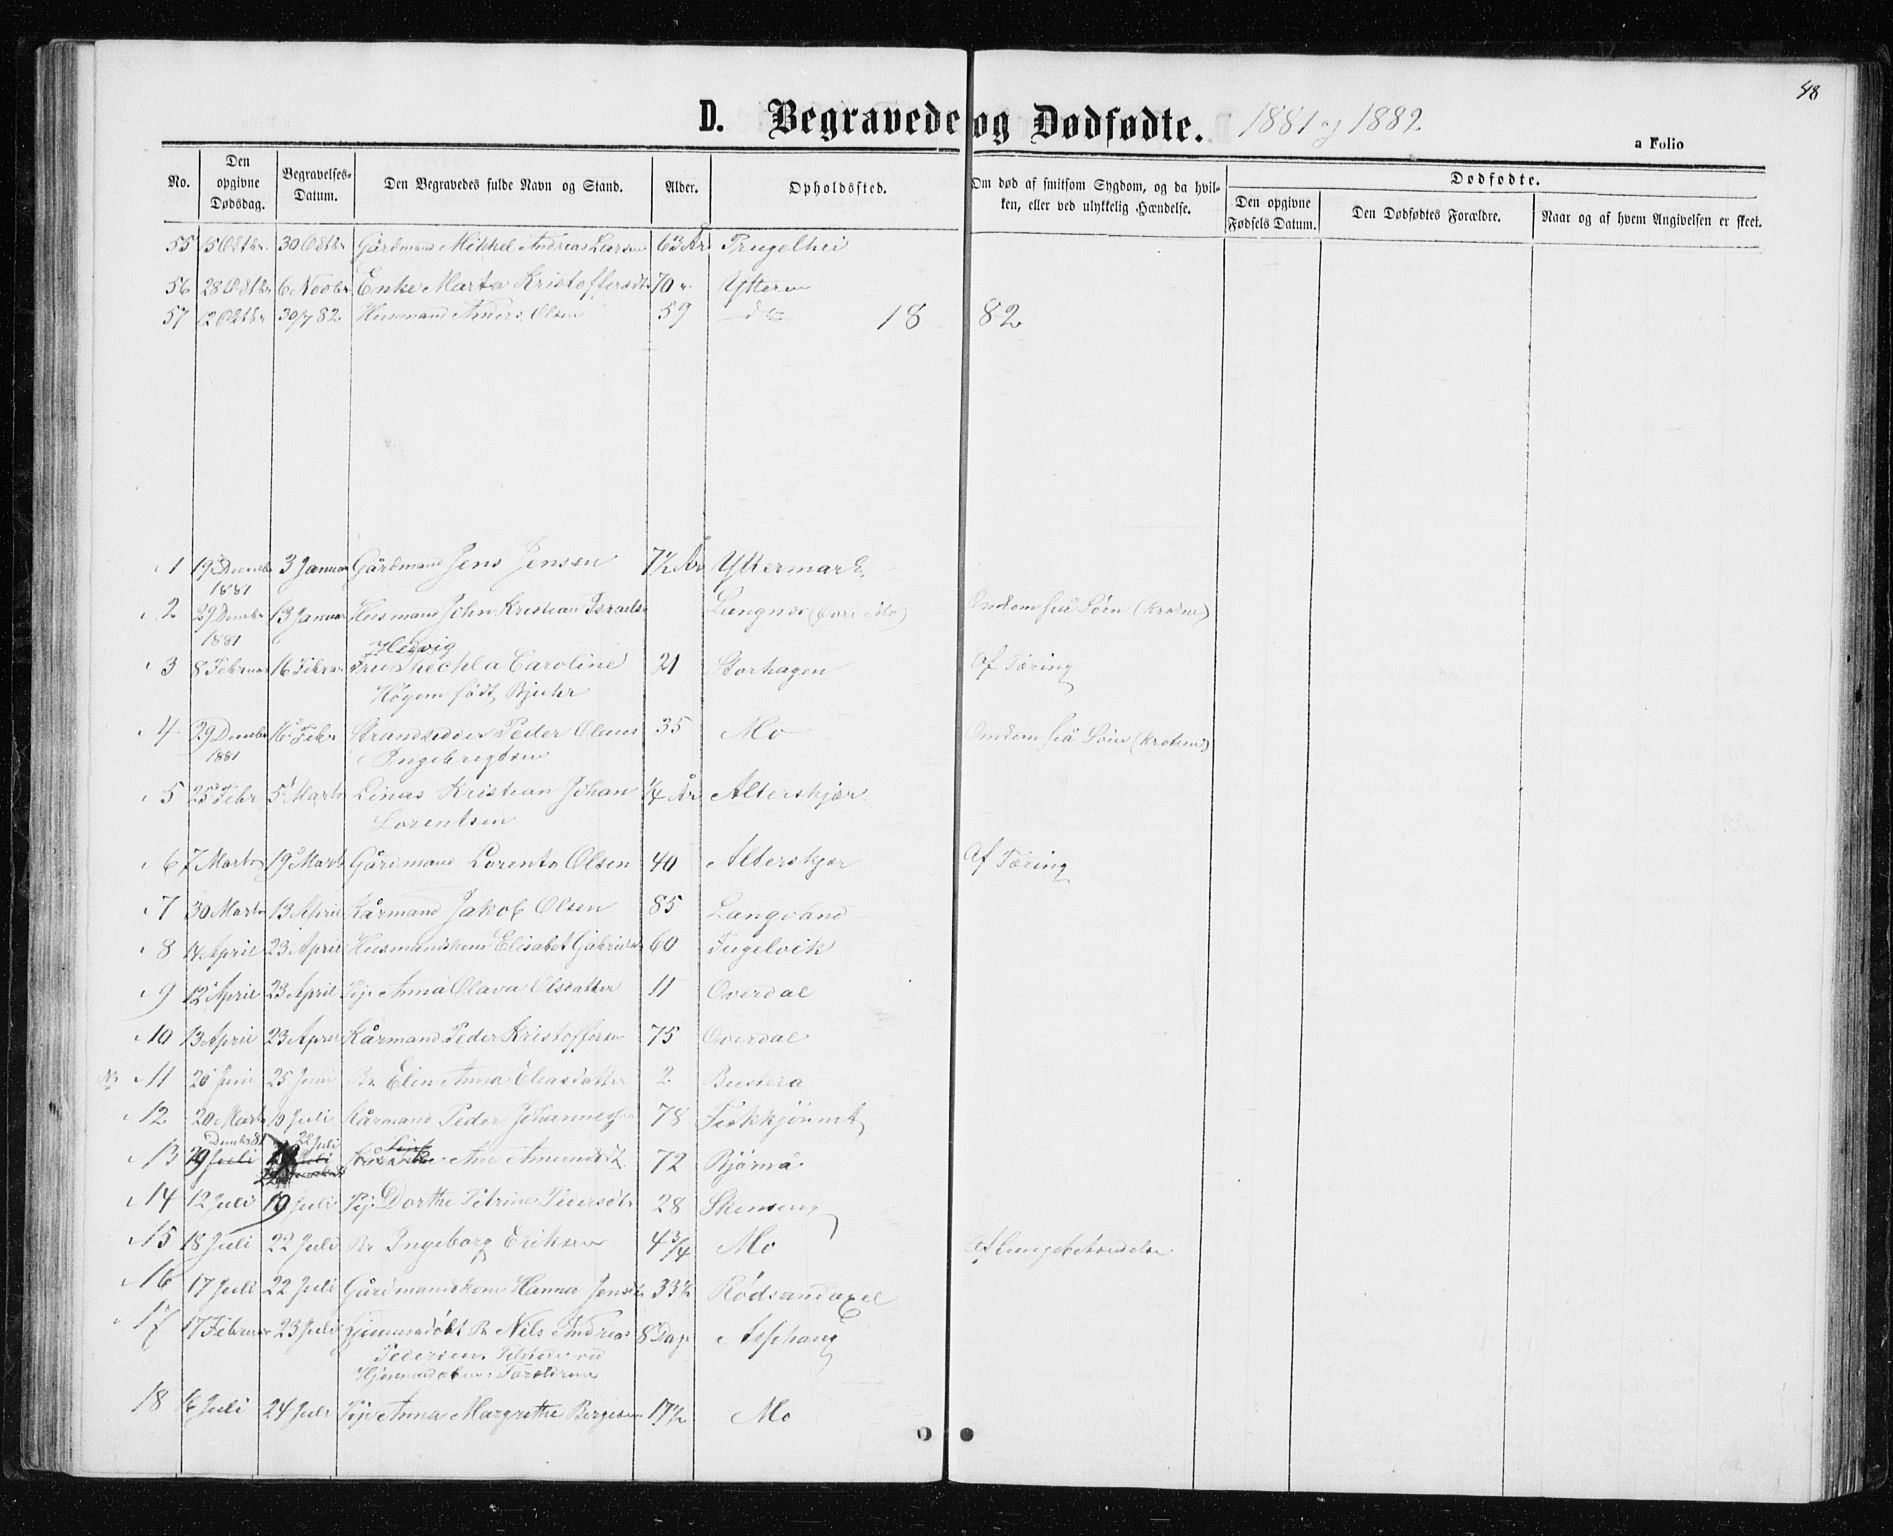 48
D. Begravede og Dødfødte. 1881 og 1882
a Folio
No. Den opgivne Dødsdag. Begravelses-Datum. Den Begravedes fulde Navn og Stand. Alder. Opholdssted. Om død af smitsom Sygdom, og da hvilken, eller ved ulykkelig Hændelse. Dødfødte.
Den opgivne Fødsels Datum. Den Dødfødtes Forældre. Naar og af hvem Angivelsen er skeet.
55 Oktbr 30 Oktbr Gårdmand Mikkel Andreas Larsen 63 År
56 28 Oktbr 6 Novbr Enke Marta Kristoffersdt 70 " Ytteren
57 12 Oktbr 30/7 82 Husmand Anders Olsen 59 do
18 82
1 19 Decembr 3 Januar Gårdmand Jens Jensen År Yttermark
1881
2 29 Decembr 13 Januar Husmand John Kristian Israels Langnes (ved Mo) Omkom på Søen (Kroken)
1881
Hedvig
3 8 Februar 16 Febru Fru Thechla Caroline 21 Storhagen Af Tæring
Høyem født
4 29 Decembr 16 Febr Strandsidder Peder Olaus 35 Mo Omkom på Søen (Kroken)
1881 Ingebrigtsen
5 25 Febr 5 Marts Linas Kristian Johan 1/4 År Alterskjær
Lorentsen
6 7 Marts 19 Marts Gårdmand Lorents Olsen 40 Alterskjær Af Tæring
7 30 Marts 13 April Kårmand Jakob Olsen 85 Langvand
8 14 April 23 April Husmandskone Elisabet Gabriels 60 Fugelvik
9 12 April 23 April Pige Anna Olava Olsdatter 11 Overdal
10 13 April 23 April Kårmand Peder Kristoffersen 75 Overdal
11 20 Juni 25 Juni Elin Anna Eliasdatter 2
12 20 Marts Juli Kårmand Peder Johannes 78
Decmbr 81 22 Juli
13 29 Juli Ane Amundsdt 72 Bjørnå
14 12 Juli 19 Juli Pige Dorthe Petrine Pedersdt 28
15 18 Juli 22 Juli Br Ingeborg Eriksen 4 3/4 Mo Af Lungebetændelse
16 17 Juli 22 Juli Gårdmandskone Hanna Jensdt 33 1/2 Rødsandaxel
17 17 Februar 23 Juli Hjemmedøbt Br Nils Andreas 8 Dage Asphaug
Pedersen.
Hjemmedåben: Forældrene
18 16 Juli 24 Juli Pige Anna Margrethe 17 1/2 Mo